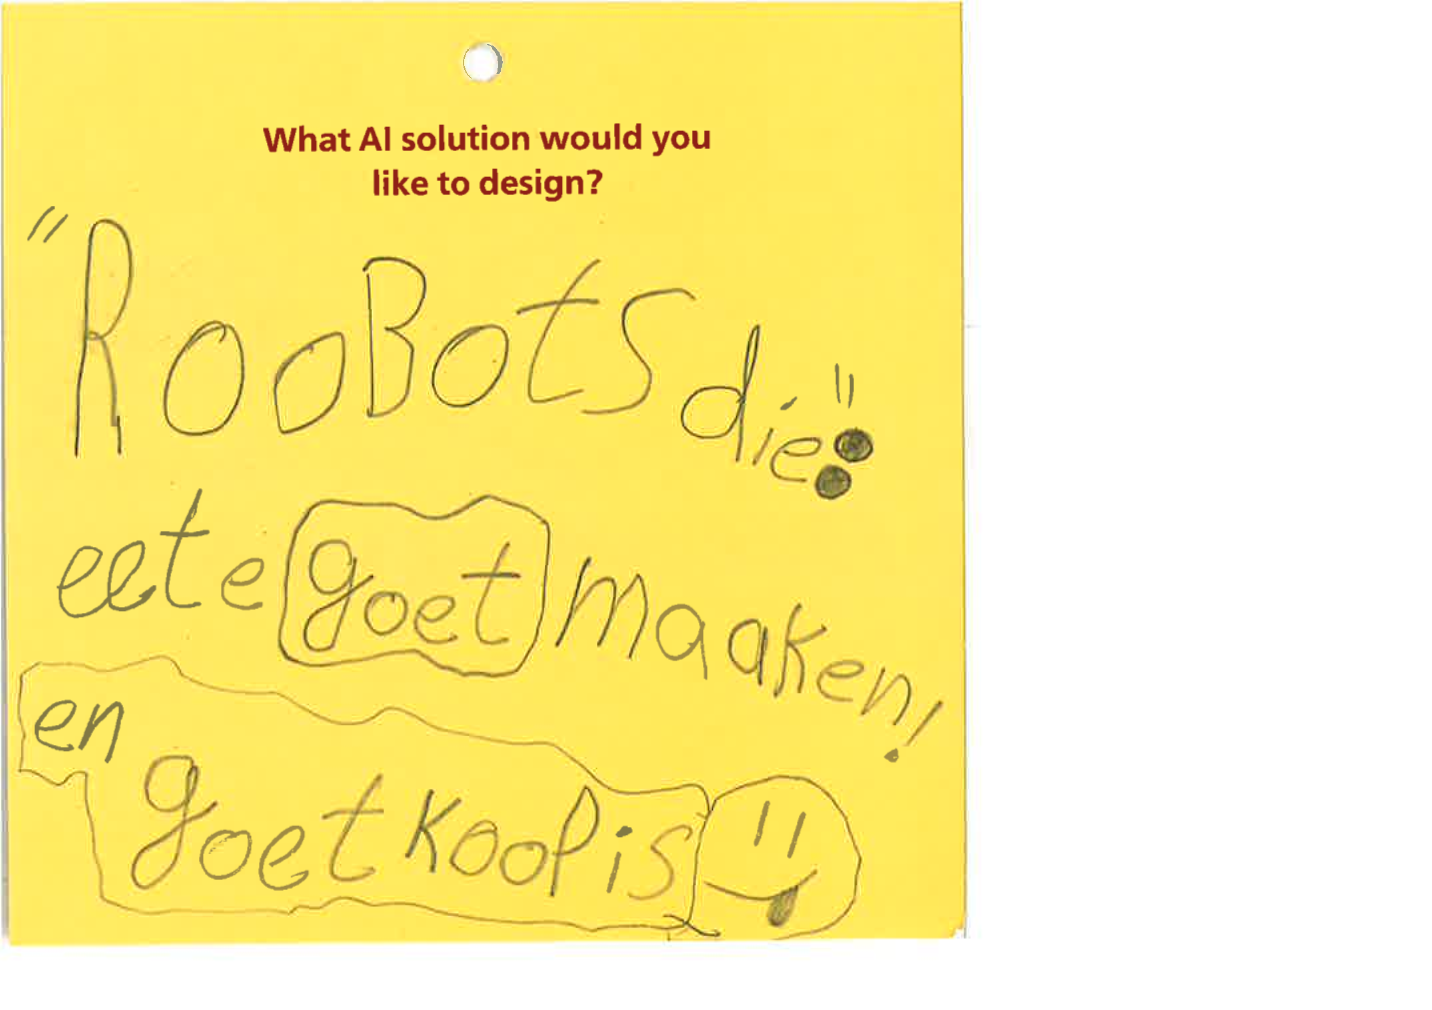 What AI solution would you
like to design?
"RooBots die:"
eete goet maaken!
en
goet koop is